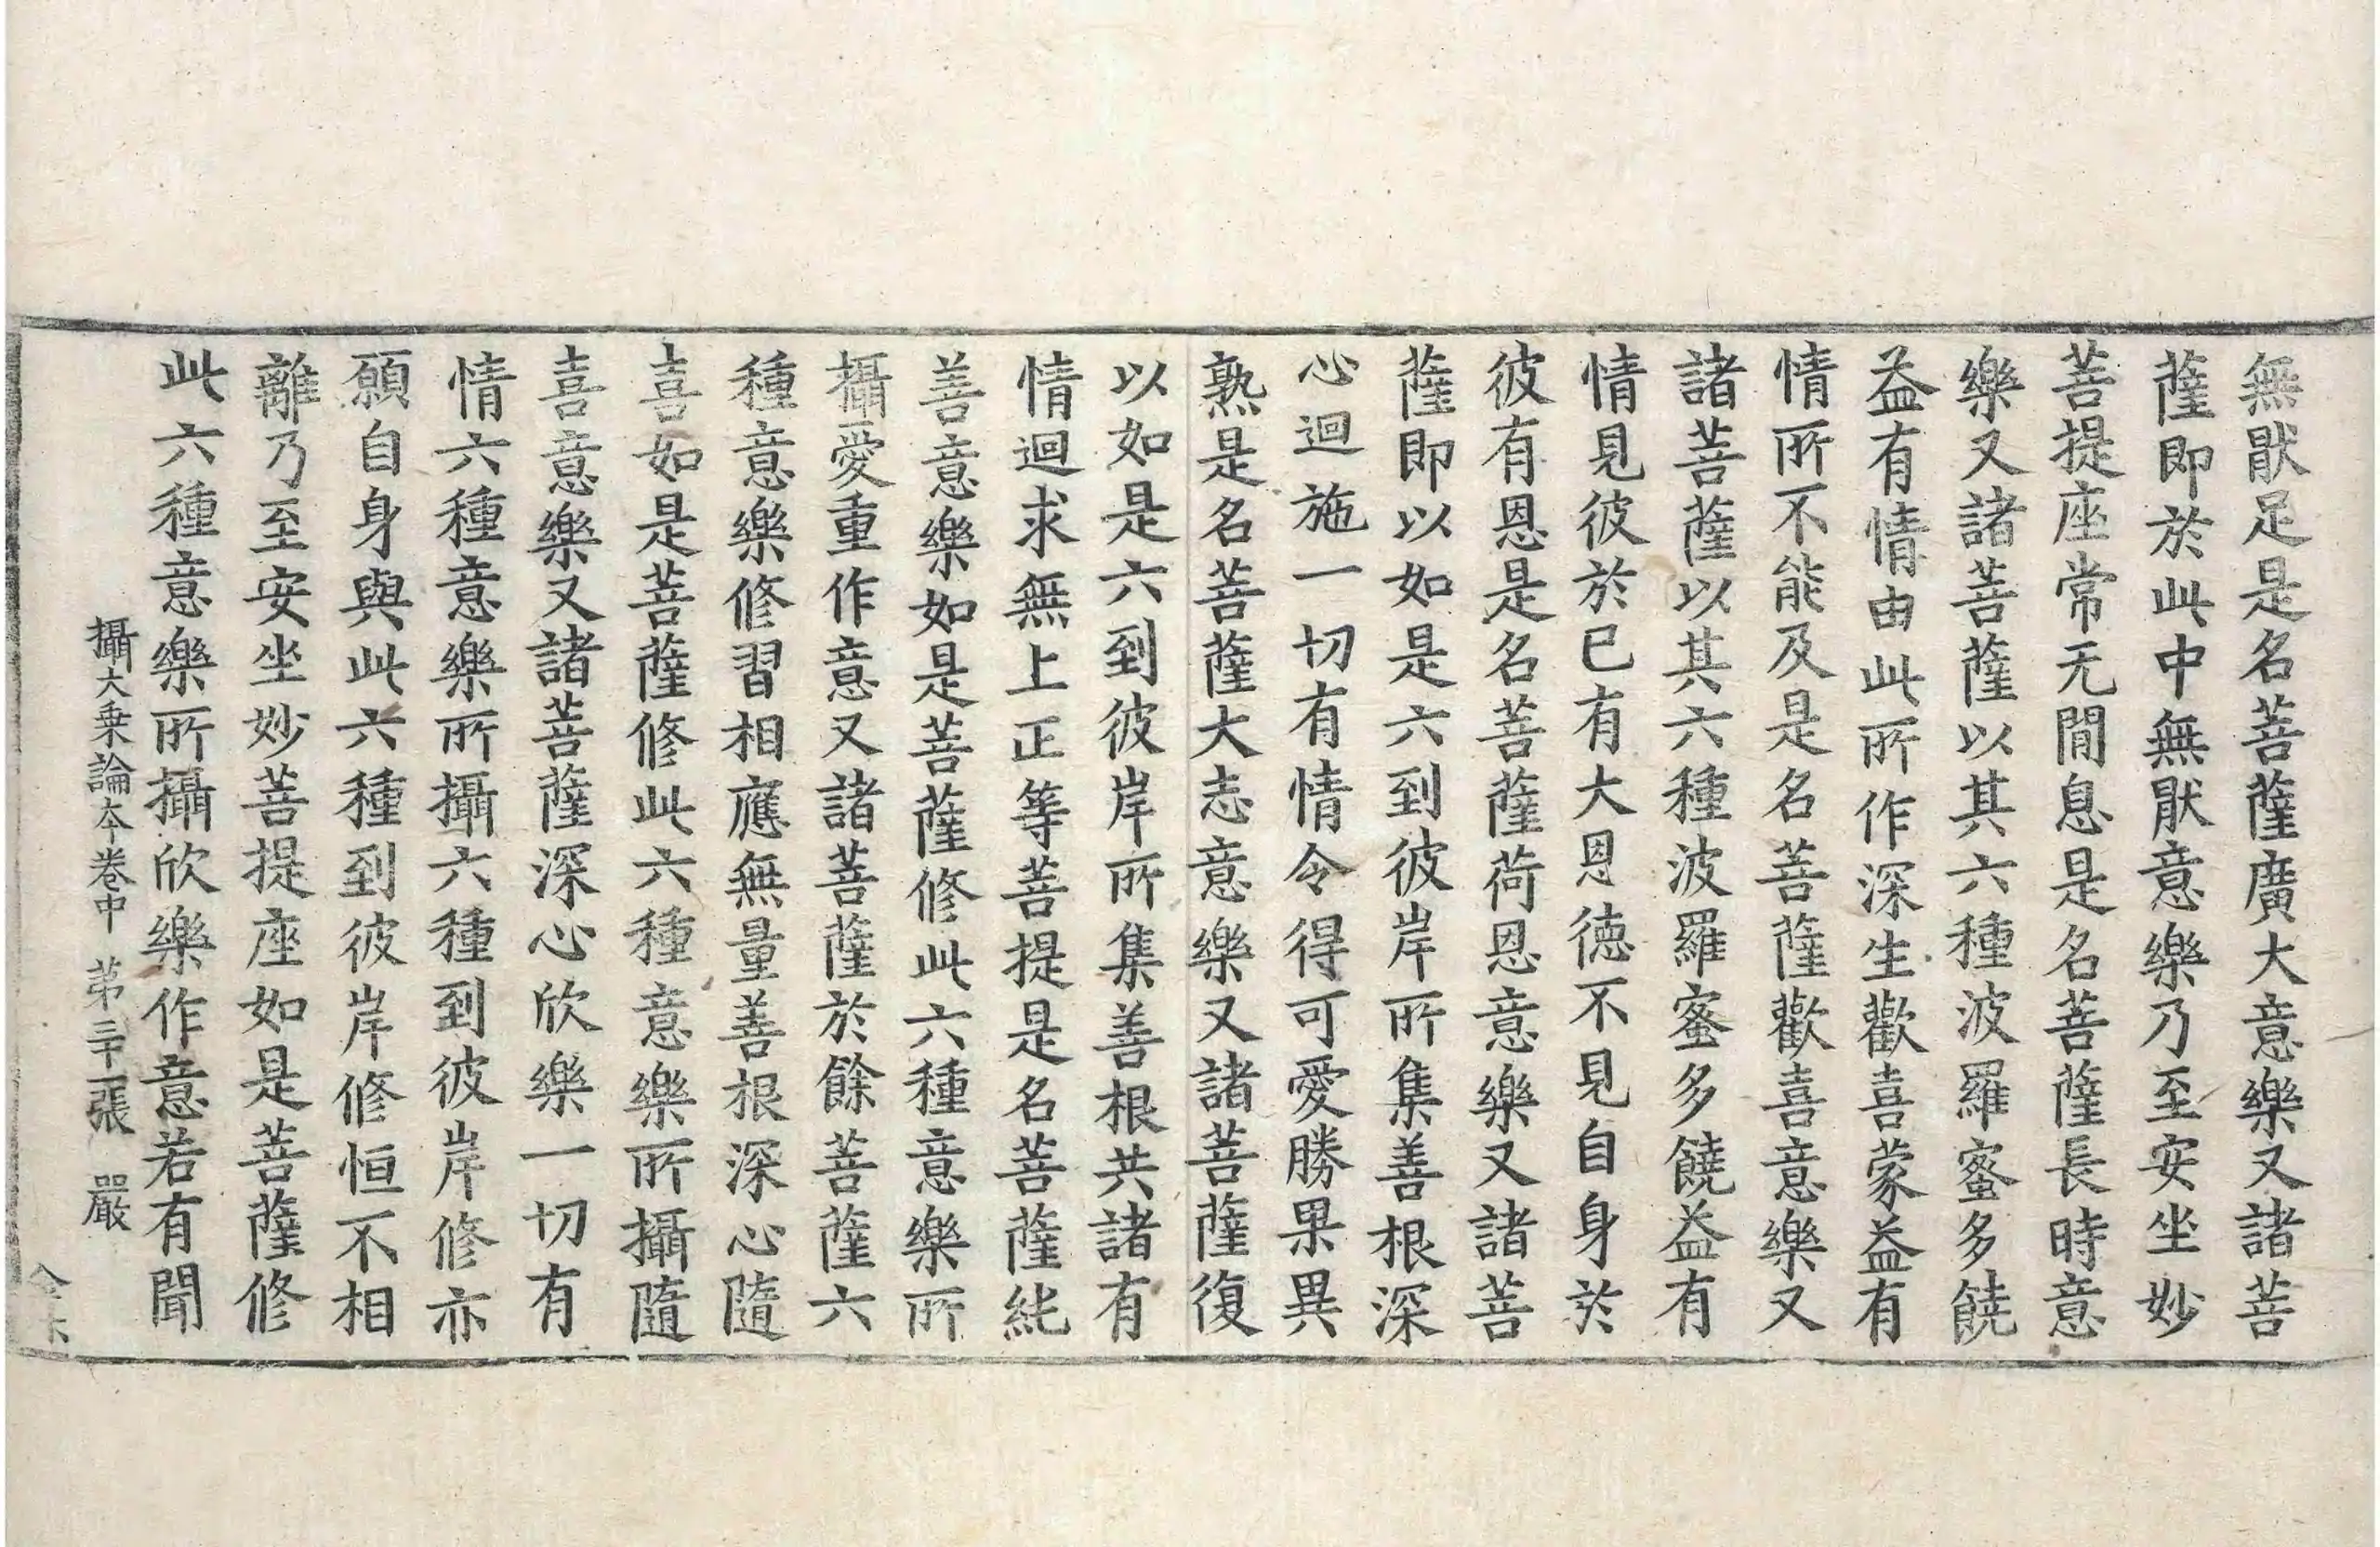 無猒足是名菩薩廣大意樂又諸菩
薩即於此中無猒意樂乃至安坐妙
菩提座常无閒息是名菩薩長時意
樂又諸菩薩以其六種波羅蜜多饒
益有情由此所作深生歡喜蒙益有
情所不能及是名菩薩歡喜意樂又
諸菩薩以其六種波羅蜜多饒益有
情見彼於已有大恩德不見自身於
彼有恩是名菩薩荷恩意樂又諸菩
薩即以如是六到彼岸所集善根深
心迴施一切有情令得可愛勝果異
熟是名菩薩大志意樂又諸菩薩復
以如是六到彼岸所集善根共諸有
情迴求無上正等菩提是名菩薩純
善意樂如是菩薩修此六種意樂所
攝愛重作意又諸菩薩於餘菩薩六
種意樂修習相應無量善根深心隨
喜如是菩薩修此六種意樂所攝隨
喜意樂又諸菩薩深心欣樂一切有
情六種意樂所攝六種到彼岸修亦
願自身與此六種到彼岸修恒不相
離乃至安坐妙菩提座如是菩薩修
此六種意樂所攝欣樂作意若有聞
攝大乗論夲卷中 苐三十一張 嚴